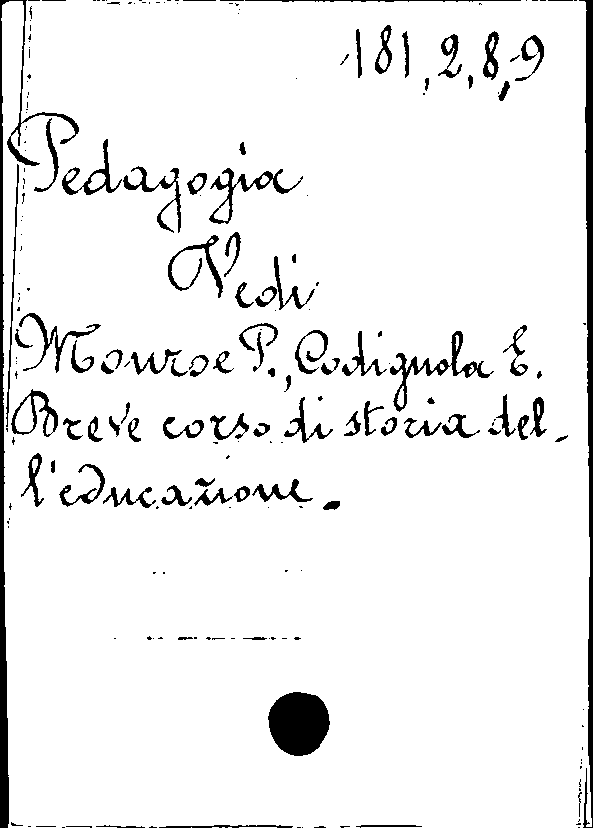 181,2,8,9
Pedagogia
Vedi
Monroe P., Codignola E.
Breve corso di storia del-
l'educazione.